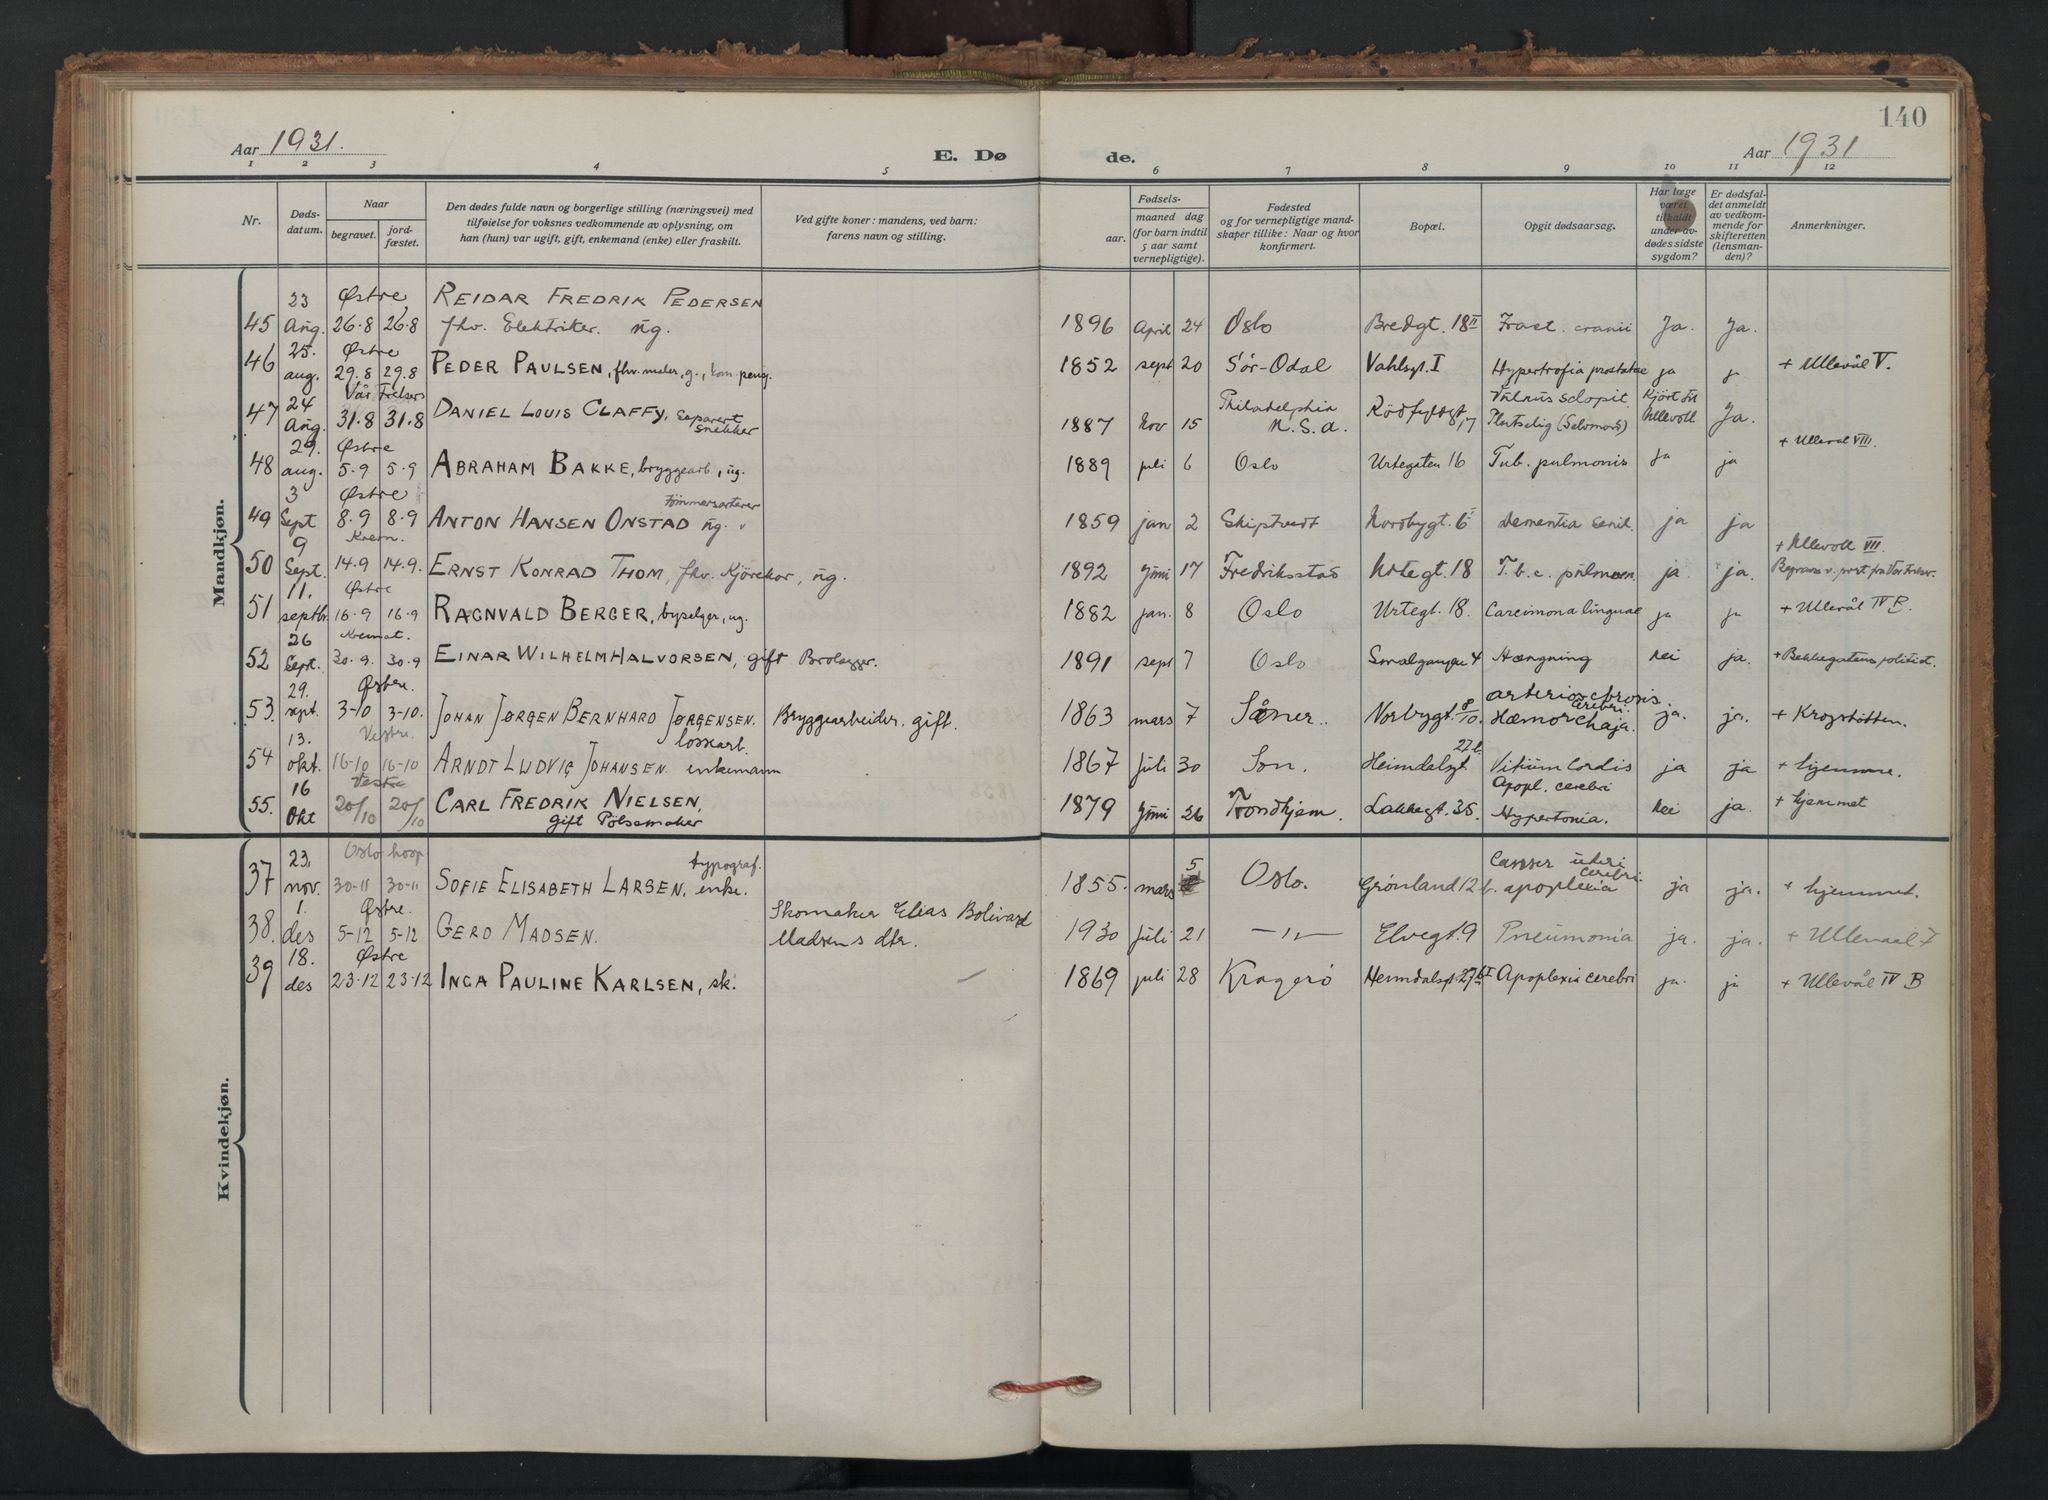 140
Aar 1931.
E. Døde.
Aar 1931
1 2 3 4 5 6 7 8 9 10 11 12
Nr.
Døds-
datum.
Naar
begravet.
jord-
fæstet.
Den dødes fulde navn og borgerlige stilling (næringsvei) med
tilføielse for voksnes vedkommende av oplysning, om
han (hun) var ugift, gift, enkemand (enke) eller fraskilt.
Ved gifte koner: mandens, ved barn:
farens navn og stilling.
Fødsels-
aar.
maaned dag
(for barn indtil
5 aar samt
vernepligtige).
Fødested
og for vernepligtige mand-
skaper tillike: Naar og hvor
konfirmert.
Bopæl.
Opgit dødsaarsag.
Har læge
været
tilkaldt
under av-
dødes sidste
sygdom?
Er dødsfal-
det anmeldt
av vedkom-
mende for
skifteretten
(lensman-
den)?
Anmerkninger.
Mandkjøn.
23 Østre REIDAR FREDRIK PEDERSEN
45 Aug. 26.8 26.8 fhv. Elektriker. ug. 1896 April 24 Oslo Bredgt. 18 II Fract. cranii Ja. Ja.
25. Østre
46 aug. 29.8 29.8 PEDER PAULSEN, fhv. maler, g., kom. peng. 1852 sept 20 Sør-Odal Vahlsgt. I Hypertrofia prostatae ja j + Ullevål V.
24 Vår Frelsers
47 Aug. 31.8 31.8 DANIEL LOUIS CLAFFY, separert snekker 1887 Nov 15 Philadelphia U.S.A. Rødfyldgt, 17 Vulnus sclopit. Ullevoll Ja.
29. Østre
48 aug. 5.9 5.9 ABRAHAM BAKKE, bryggearb., ug. 1889 juli 6 Oslo Urtegaten 16 Tub. pulmonis ja ja + Ullevål VIII.
3 Østre
49 Sept 8.9 8.9 ANTON HANSEN ONSTAD ug. Tømmersorterer 1859 jan 2 Skiptvedt Nordbygt. 6 Dementia senil. ja ja
9 Krem.
50 Sept. 14.9 14.9. ERNST KONRAD THOM, fhv. Kjørekar, ug. 1892 Juni 17 Fredriksstad Urtegt. 18 T.b.c. pulmon. ja ja. + Ullevoll VII.
11. Østre
51 septbr. 16.9 16.9 RAGNVALD BERGER, byselger, ug. 1882 jan. 8 Oslo Urtegt. 18. Carcimona linguae ja ja + Ullevål IV B.
26 Kremat.
52 Sept. 30.9. 30.9 EINAR WILHELM HALVORSEN, gift Brolegger. 1891 sept 7 Oslo Smalgangen 4 Hængning Nei ja. + Bekkegatens politist.
29. Østre.
53. sept. 3-10 3-10. JOHAN JØRGEN BERNHARD JØRGENSEN. Bryggearbeider. gift. 1863 mars 7 Såner. Norbygt. 8/10. arteriosclerosis cerebri. Hæmorrhaja. ja. ja. + Krogstøtten.
13. Vestre.
54 okt. 16-10 16-10 ARNDT LUDVIG JOHANSEN. lossearb. enkemann 1867 Juli 30 Son. Heimdalsgt. 27 b. Vitium Cordis ja ja + hjemme.
16 Vestre
55. Okt 20/10 20/10 CARL FREDRIK NIELSEN, gift Pølsemaker 1879 Juni 26 Trondhjem. Lakkegt. 35. Apopl. cerebri Hypertonia. Nei ja. + hjemmet
Kvindekjøn.
23. Oslo hosp
37 nov. 30-11 30-11 SOFIE ELISABETH LARSEN. typograf. enke. 1855. mars 5 Oslo. Grønland 12 b. Cancer uteri apoplexia cerebri. ja ja. + hjemmet.
1. Østre.
38. des 5-12 5-12 GERD MADSEN. Skomaker Elias Bolivard Madsens dtr. 1930 Juli 21 —"— Elvegt. 9 Pneumonia ja. ja. + Ullevaal 7
18. Østre
39 des 23-12 23-12 INGA PAULINE KARLSEN, sk. 1869 juli 28 Kragerø Heimdalsgt. 27 b I Apoplexia cerebri ja. ja + Ullevål IV B